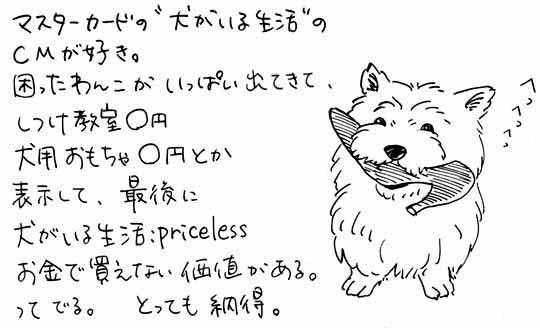 マスターカードの"犬がいる生活"の
CMが好き。
困ったわんこがいっぱい出てきて、
しつけ教室〇円
犬用おもちゃ〇円とか
表示して、最後に
犬がいる生活:priceless
お金で買えない価値がある。
ってでる。 とっても納得。
ヘヘヘ